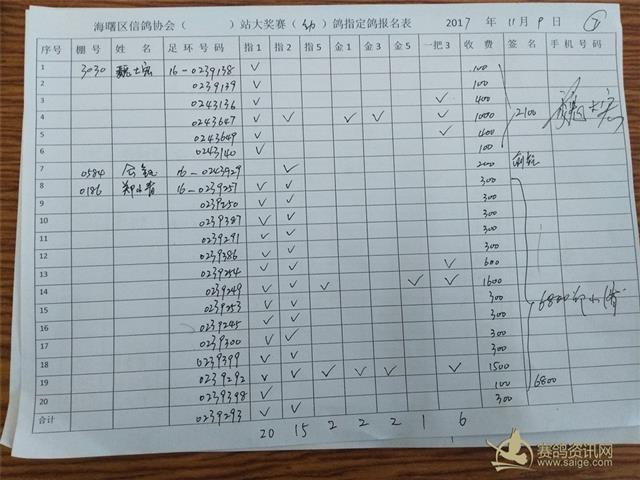 海曙区信鸽协会（ ）站大奖赛（幼）鸽指定鸽报名表 2017 年 11 月 9 日
序号 棚号 姓名 足环号码 指1 指2 指5 金1 金3 金5 一把3 收费 签名 手机号码
1 3030 魏士宏 16-0239138 ✓ 100
2 0239139 ✓ 100
3 0243136 ✓ ✓ 400
4 0243647 ✓ ✓ ✓ ✓ ✓ 1000 2100
5 0243649 ✓ ✓ 400
6 0243140 ✓ 100
7 0584 16-0243929 ✓ 200
8 0186 郑小青 16-0239257 ✓ ✓ 300
9 0239250 ✓ ✓ 300
10 0239387 ✓ ✓ 300
11 0239291 ✓ ✓ 300
12 0239386 ✓ ✓ 300
13 0239254 ✓ ✓ ✓ 600
14 0239249 ✓ ✓ ✓ ✓ ✓ 1600
15 0239253 ✓ ✓ 300 6800
16 0239245 ✓ ✓ 300
17 0239300 ✓ ✓ 300
18 0239399 ✓ ✓ 300
19 0239292 ✓ ✓ ✓ ✓ ✓ ✓ 1500
20 0239398 ✓ 100 6800
合计 0239293 ✓ ✓ 300
20 15 2 2 2 1 6
赛鸽资讯网
www.saige.com